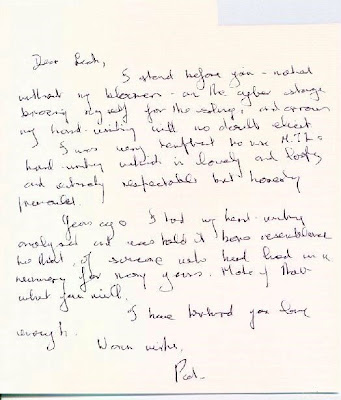 Dear Leah,
I stand before you - naked
without my bloomers - on the cyber stage
bracing myself for the slings and arrows
my hand-writing will no doubt elicit
I was very tempted to use M.T.L's
hand-writing which is lovely and loopy
and entirely respectable but honesty
prevailed.
Years ago I had my hand-writing
analysed and was told it bore resemblance
to that of someone who had been in a
nunnery for many years. Make of that
what you will.
I have tortured you long
enough.
Warm wishes,
Pat.